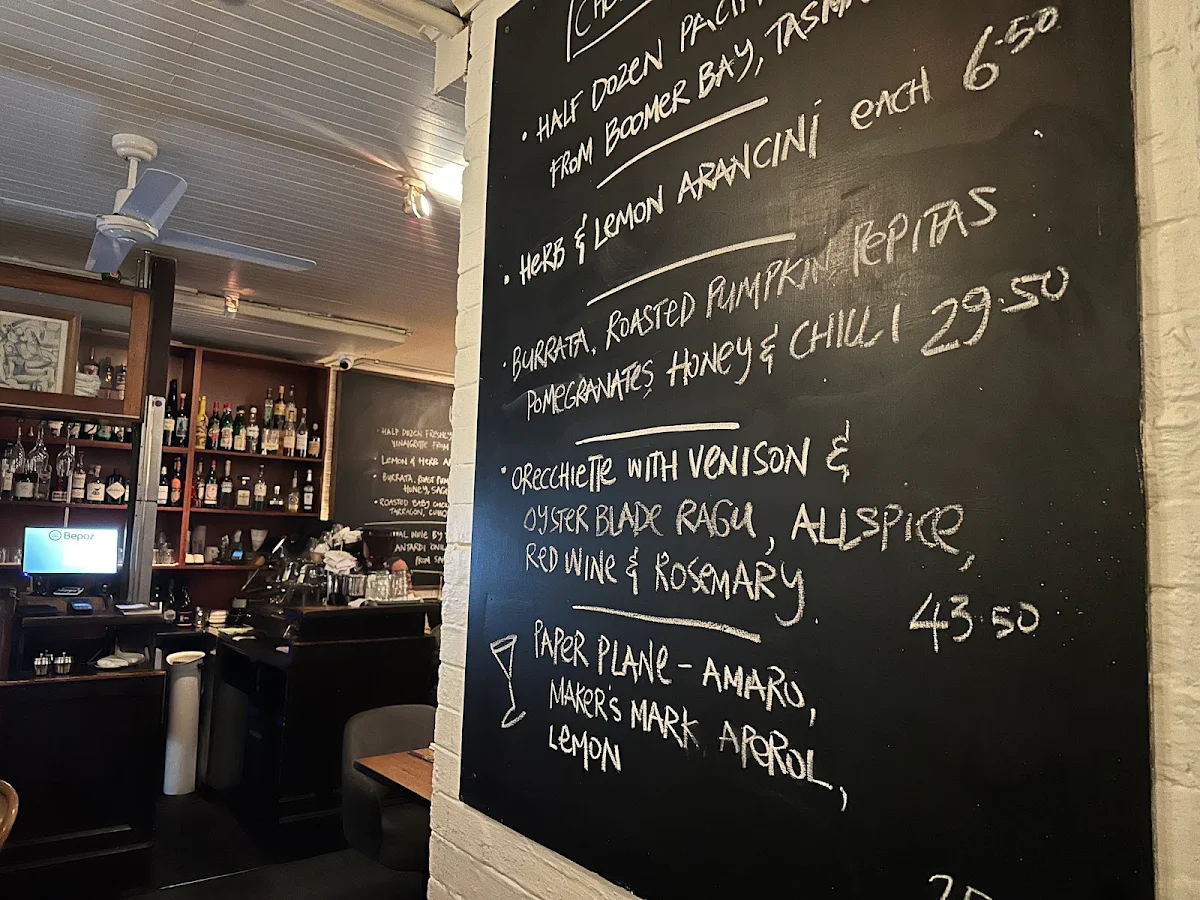 • HALF DOZEN
FROM BOOMER BAY,
• HERB & LEMON ARANCINI each 6.50
• BURRATA, ROASTED PUMPKIN PEPITAS
POMEGRANATES HONEY & CHILLI 29.50
• ORECCHIETTE WITH VENISON &
OYSTER BLADE RAGU, ALLSPICE,
RED WINE & ROSEMARY.
43.50
PAPER PLANE - AMARO,
MAKER'S MARK APOROL,
LEMON
Bepoz
• HALF DOZEN FRESHLY
VINAIGRETTE FROM
• LEMON & HERB
• BURRATA, ROAST
HONEY,
• ROASTED BABY
TARRAGON,